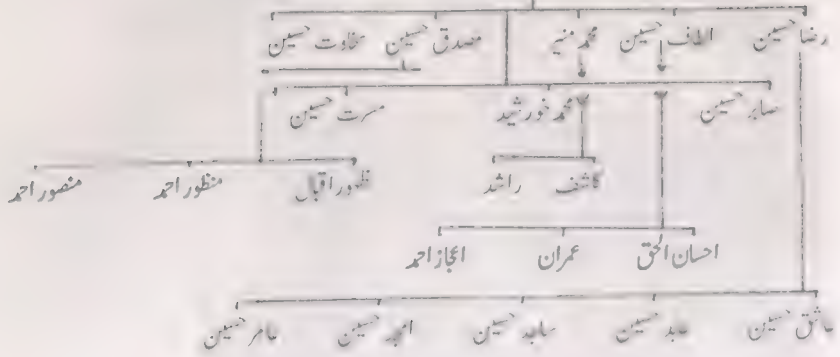 رضا حسین الطاف حسین محمد منیر مصدق حسین سخاوت حسین
صابر حسین محمد خورشید مسرت حسین
کاشف راشد ظہور اقبال منظور احمد منصور احمد
احسان الحق عمران اعجاز احمد
عاشق حسین عابد حسین ساجد حسین امجد حسین عامر حسین